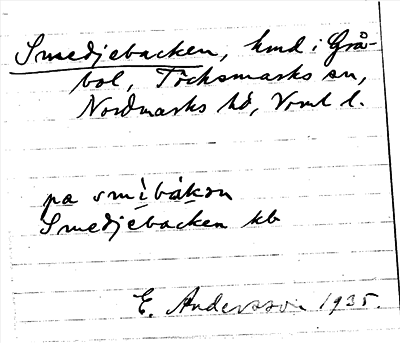 Smedjebacken, hmd i Grå-
bol, Töcksmarks sn,
Nordmarks hd, Vrml l.
pa smìbákən
Smedjebacken kb
E. Andersson 1935.